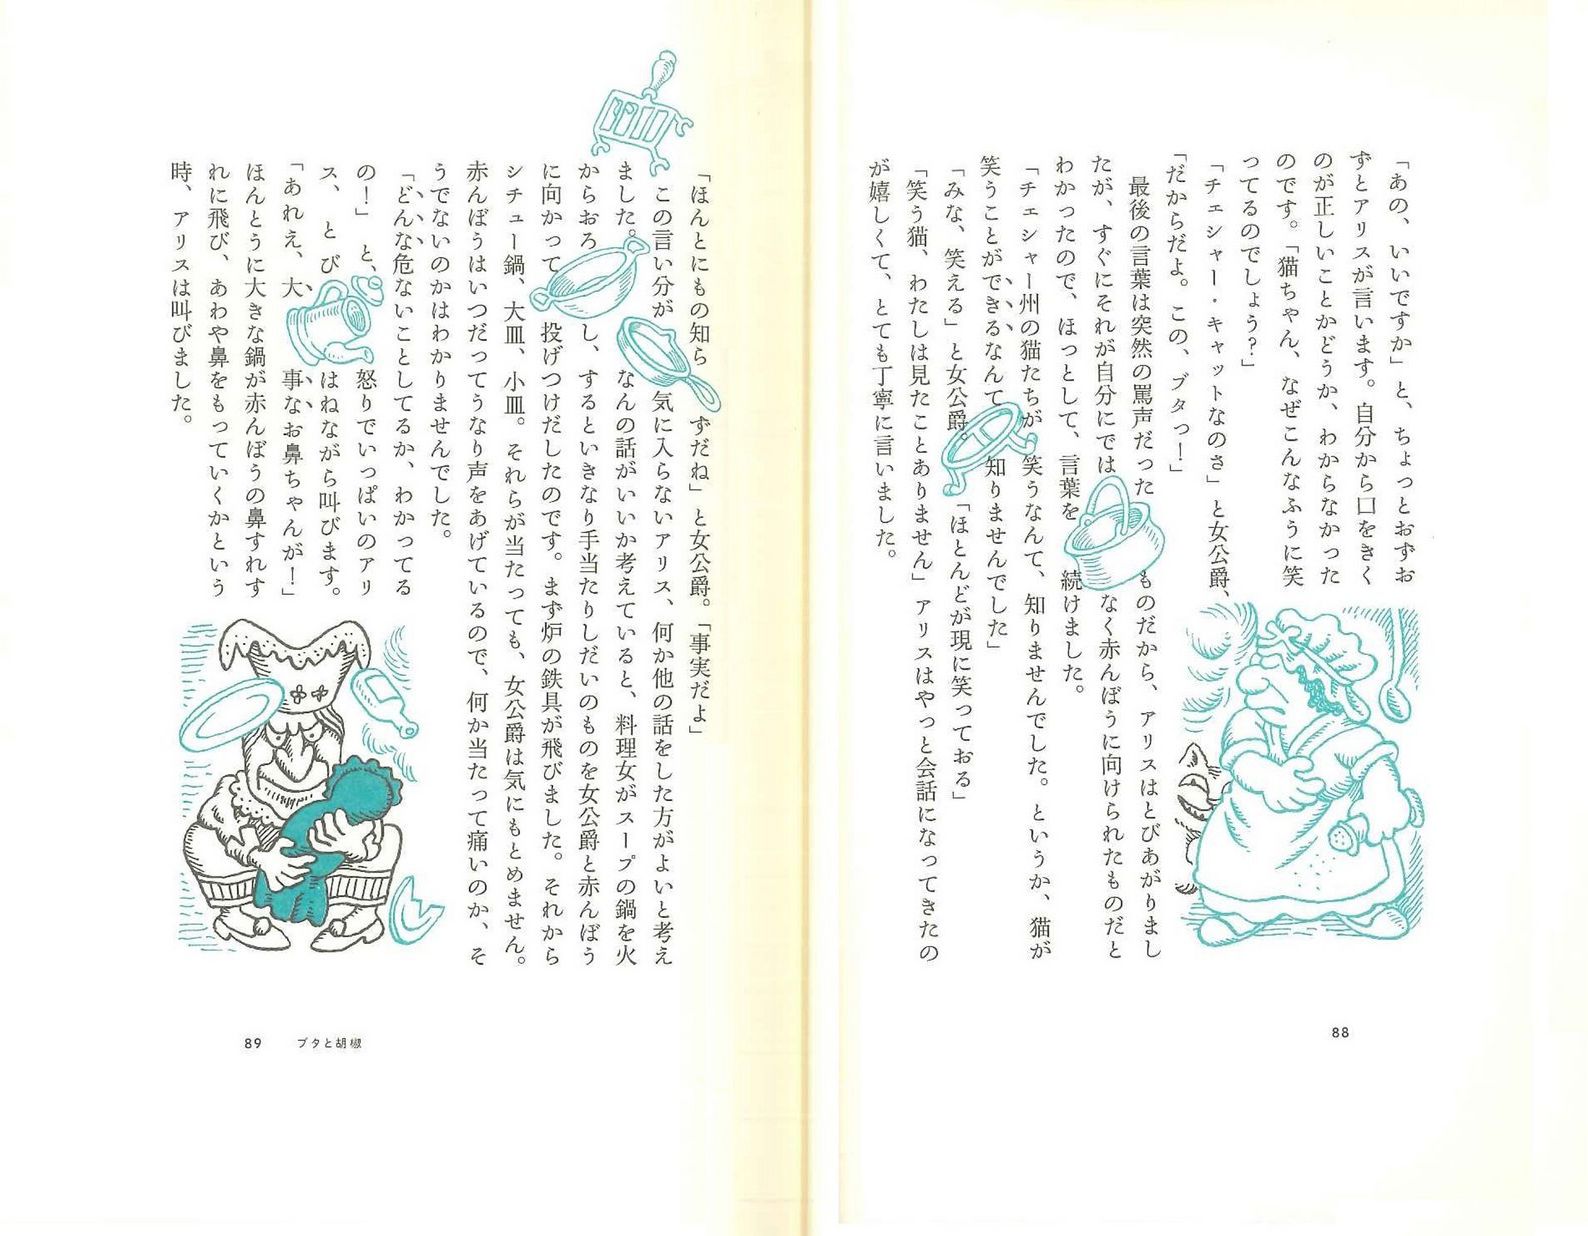 「あの、いいですか」と、ちょっとおずお
ずとアリスが言います。自分から口をきく
のが正しいことかどうか、わからなかった
のです。「猫ちゃん、なぜこんなふうに笑
ってるのでしょう?」
「チェシャー・キャットなのさ」と女公爵、
「だからだよ。この、ブタっ!」
最後の言葉は突然の罵声だった ものだから、アリスはとびあがりまし
たが、すぐにそれが自分にでは なく赤んぼうに向けられたものだと
わかったので、ほっとして、言葉を 続けました。
「チェシャー州の猫たちが 笑うなんて、知りませんでした。というか、猫が
笑うことができるなんて 知りませんでした」
「みな、笑える」と女公爵。「ほとんどが現に笑っておる」
「笑う猫、わたしは見たことありません」アリスはやっと会話になってきたの
が嬉しくて、とても丁寧に言いました。
88
「ほんとにもの知ら ずだね」と女公爵。「事実だよ」
この言い分が 気に入らないアリス、何か他の話をした方がよいと考え
ました。 なんの話がいいか考えていると、料理女がスープの鍋を火
からおろ し、するといきなり手当たりしだいのものを女公爵と赤んぼう
に向かって 投げつけだしたのです。まず炉の鉄具が飛びました。それから
シチュー鍋、大皿、小皿。それらが当たっても、女公爵は気にもとめません。
赤んぼうはいつだってうなり声をあげているので、何か当たって痛いのか、そ
うでないのかはわかりませんでした。
「どんな危ないことしてるか、わかってる
の!」と、 怒りでいっぱいのアリ
ス、とび はねながら叫びます。
「あれえ、大 事なお鼻ちゃんが!」
ほんとうに大きな鍋が赤んぼうの鼻すれす
れに飛び、あわや鼻をもっていくかという
時、アリスは叫びました。
89 ブタと胡椒